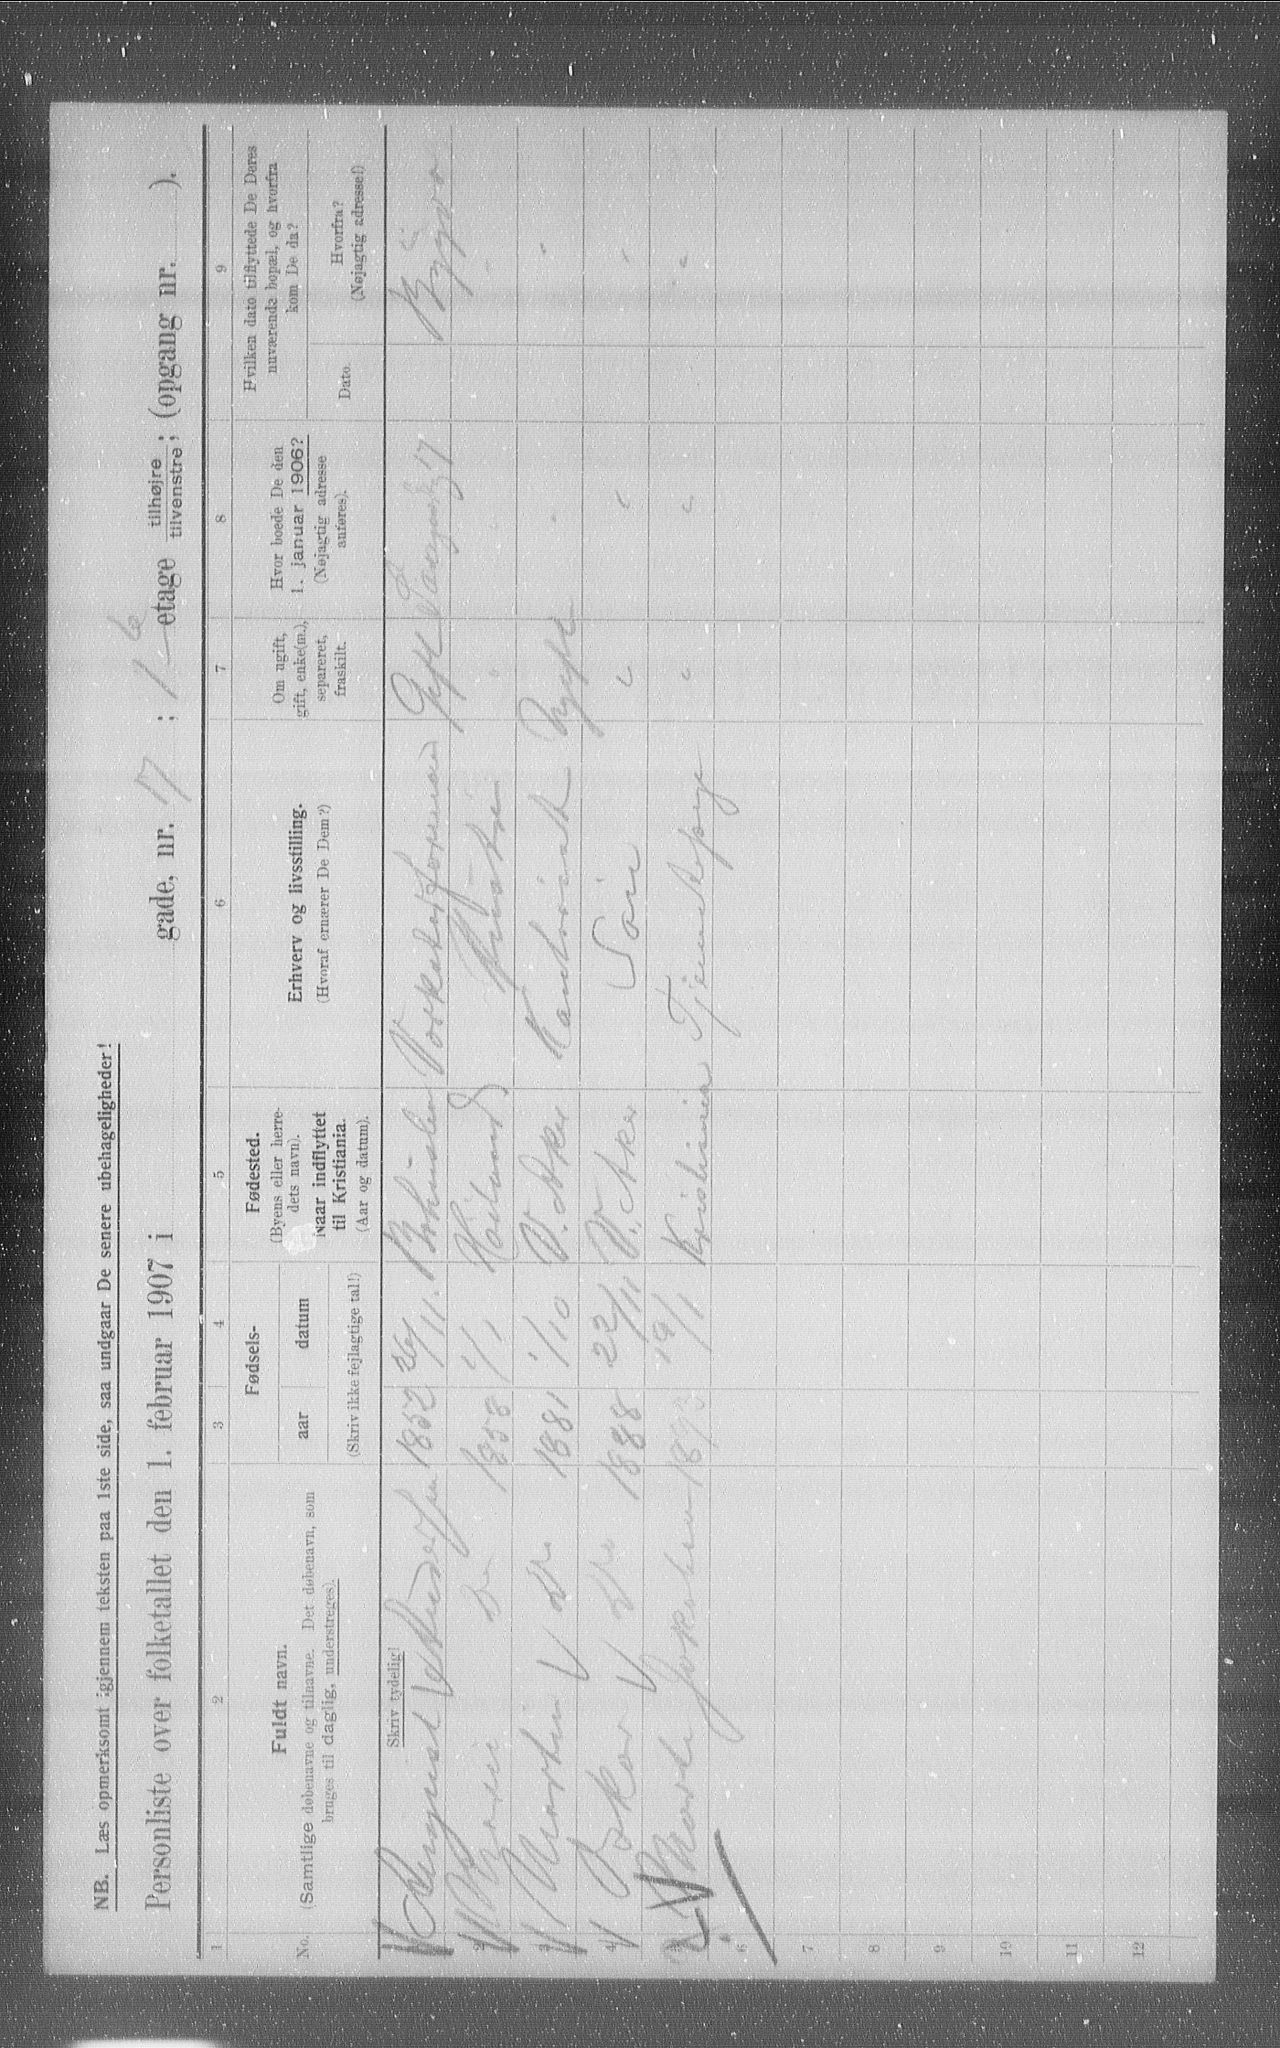 NB. Læs opmerksomt igjennem teksten paa 1ste side, saa undgaar De senere ubehageligheder!
Personliste over folketallet den 1. februar 1907 i gade, nr. 17 ; 1 etage tilhøjre tilvenstre; (opgang nr. ).
1 2 3 4 5 6 7 8 9
No.
Fuldt navn.
(Samtlige døbenavne og tilnavne. Det døbenavn, som
bruges til daglig, understreges).
Fødsels-
aar datum
(Skriv ikke fejlagtige tal!)
Fødested.
(Byens eller herre-
dets navn).
Naar indflyttet
til Kristiania.
(Aar og datum).
Erhverv og livsstilling.
(Hvoraf ernærer De Dem?)
Om ugift,
gift, enke(m.),
separeret,
fraskilt.
Hvor boede De den
1. januar 1906?
(Nøjagtig adresse
anføres).
Hvilken dato tilflyttede De Deres
nuværende bopæl, og hvorfra
kom De da?
Dato.
Hvorfra?
(Nøjagtig adresse!)
Skriv tydelig!
August Andersen 1852 26/11 Bohuslen Gift 17
2 do 1853 1/1 Hustru "
3 Martin do 1881 1/10 V. Aker Kontorist Ugift
4 Oskar do 1888 22/11 V. Aker Søn "
5 Jakobsen 1893 19/1 Kristiania Tjenestepige "
6
7
8
9
10
11
12